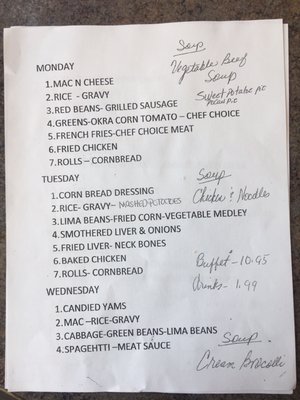 MONDAY
Soup
Vegetable Beef
Soup
Sweet Potato pie
Pecan pie
1.MAC N CHEESE
2.RICE - GRAVY
3.RED BEANS- GRILLED SAUSAGE
4.GREENS-OKRA CORN TOMATO – CHEF CHOICE
5.FRENCH FRIES-CHEF CHOICE MEAT
6.FRIED CHICKEN
7.ROLLS – CORNBREAD
TUESDAY
Soup
Chicken & Noodles
1.CORN BREAD DRESSING
2.RICE- GRAVY– MASHED POTATOES
3.LIMA BEANS-FRIED CORN-VEGETABLE MEDLEY
4.SMOTHERED LIVER & ONIONS
5.FRIED LIVER- NECK BONES
6.BAKED CHICKEN
7.ROLLS- CORNBREAD
Buffet - 10.95
Drinks - 1.99
WEDNESDAY
1.CANDIED YAMS
2.MAC –RICE-GRAVY
3.CABBAGE-GREEN BEANS-LIMA BEANS
4.SPAGEHTTI –MEAT SAUCE
Soup
Cream Brocolli